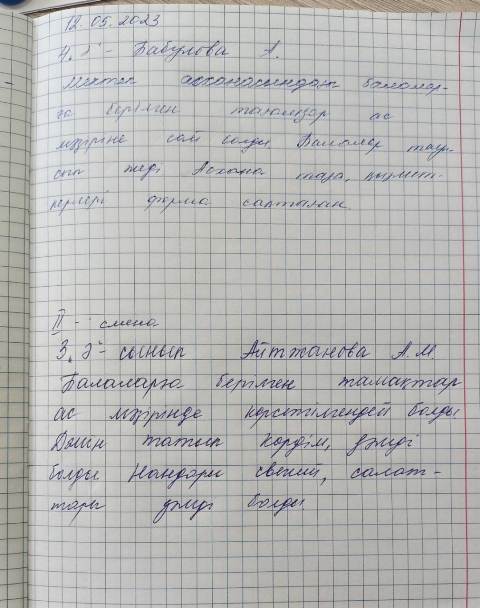 12.05.2023
4. Ә - Бабулова А.
Мектеп асханасындағы балалар-
ға берілген тағамдар ас
мәзіріне сай болды. Балалар тау-
сып жеді Асхана таза, қызмет-
керлері форма сапталған
II - смена
3. Ә - сынып Айтжанова А.М
Балаларға берілген тамақтар
ас мәзірінде көрсетілгендей болды
Дәмін татып көрдім, дәмді
болды Нандары свежий, салат-
тары дәмді болды